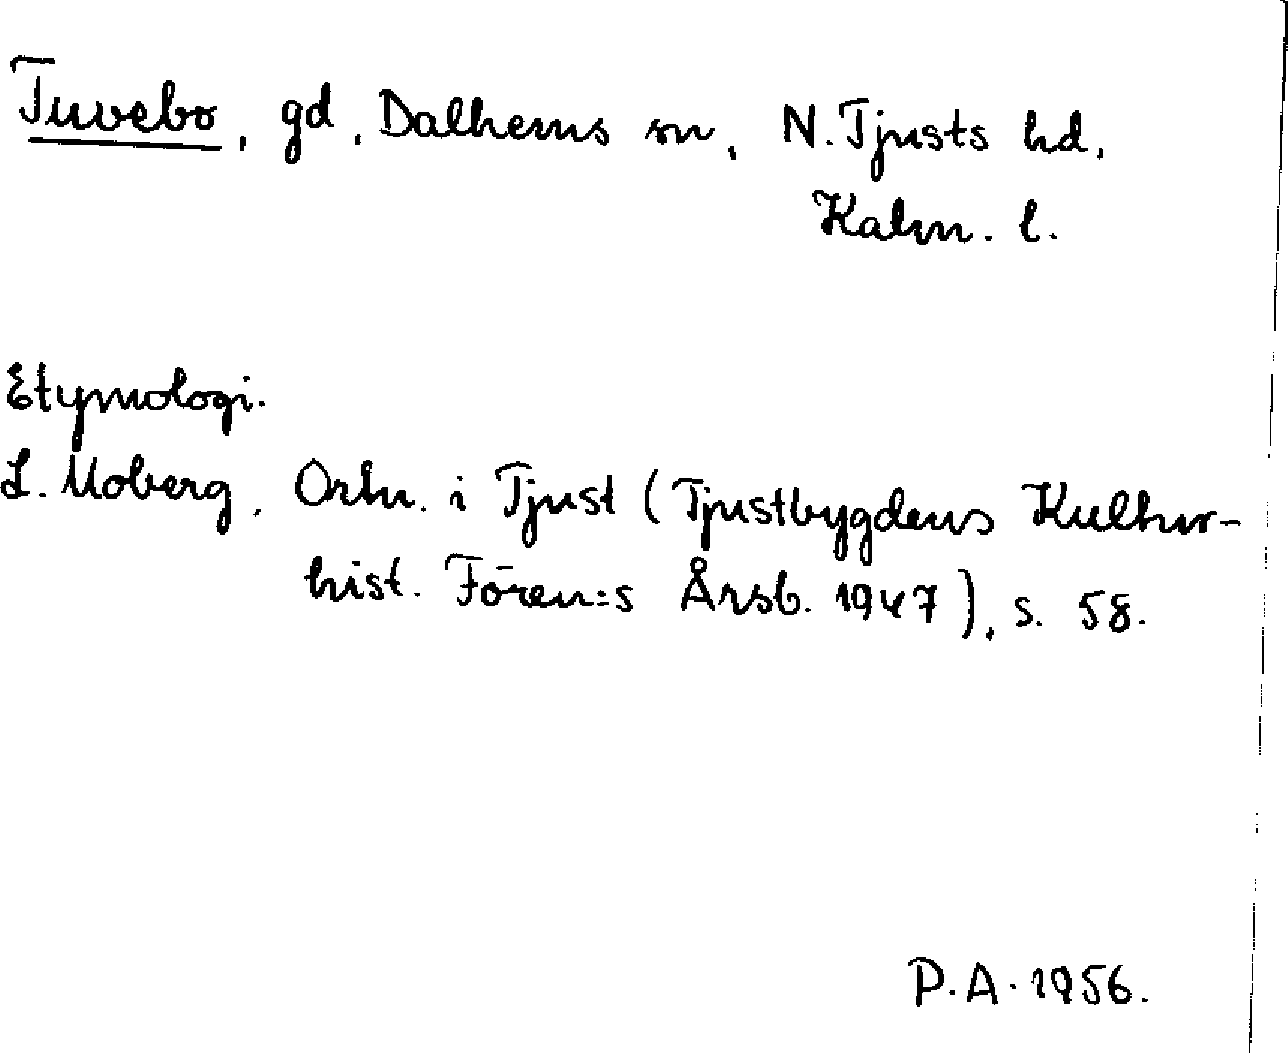 Tuvebo, gd, Dalhems sn, N. Tjusts hd,
Kalm. l.
Etymologi.
L. Moberg, Ortn. i Tjust (Tjustbygdens Kultur-
hist. Fören:s Årsb. 1947), s. 58.
P.A. 1956.